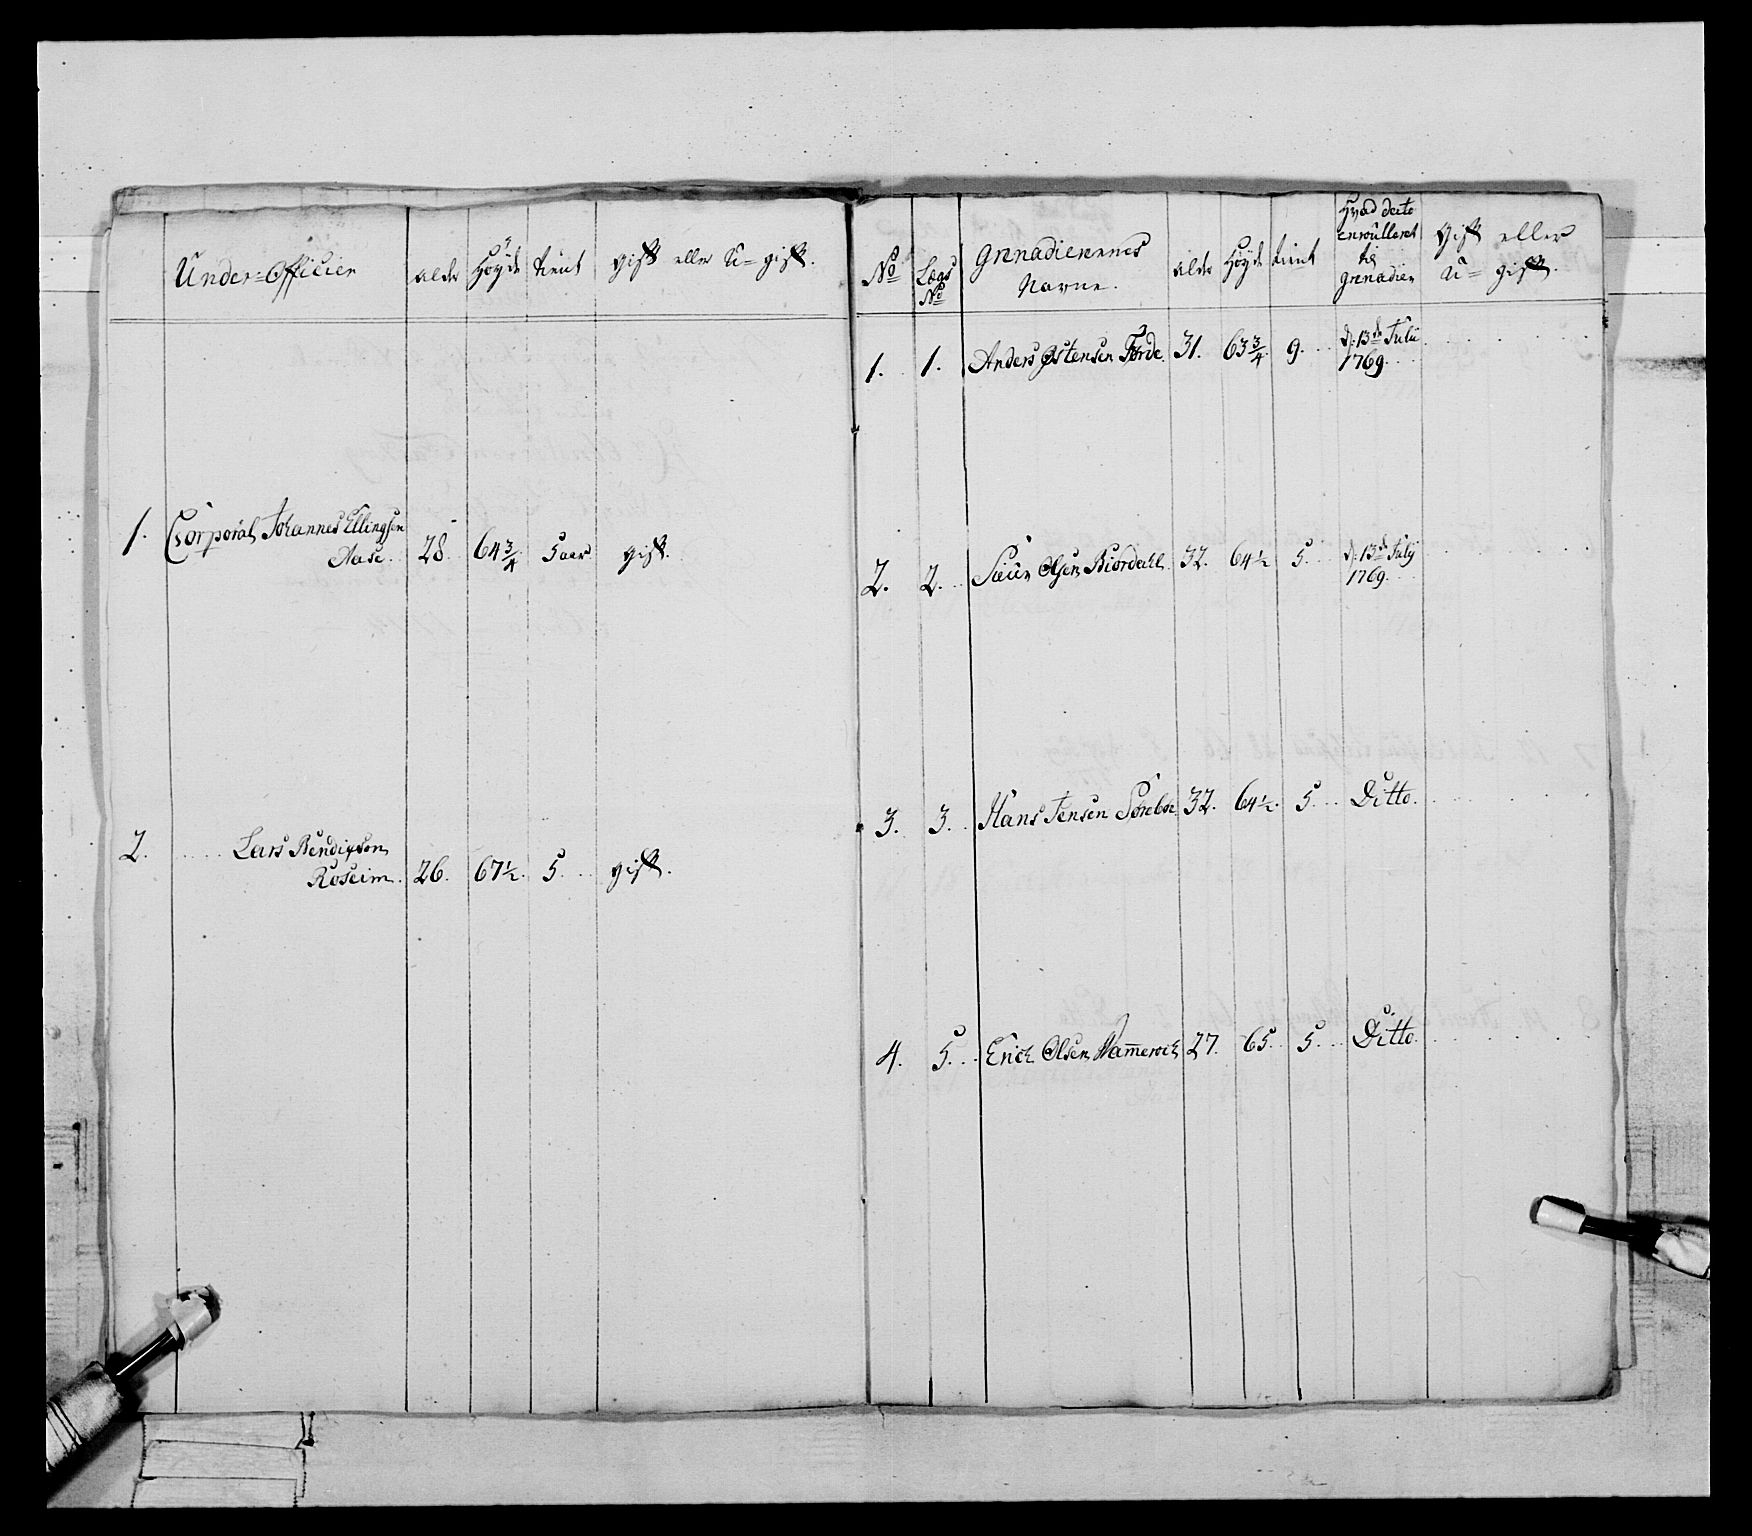 Under-Officier alder Höyde tient gift eller U-gift.
1. Corporal Johannes Ellingsen
Aase. 28. 64 3/4 5 aar gift.
2. Lars Bendixsen
Roseim. 26. 67 1/2. 5. gift.
No Lægs No Grenadierernes Navne. alder Höyde tient Hvad dato enroulleret til grenadier Gift eller U-gift.
1. 1. Anders Østensen Förde 31. 63 3/4. 9. d: 13de Julii
1769.
2. 2. Siur Olsen Biördahl 32. 64 1/2 5. d: 13de Julij
1769.
3. 3. Hans Jensen Sörebøe 32. 64 1/2. 5. Ditto.
4. 5. Erich Olsen 27. 65. 5. Ditto.